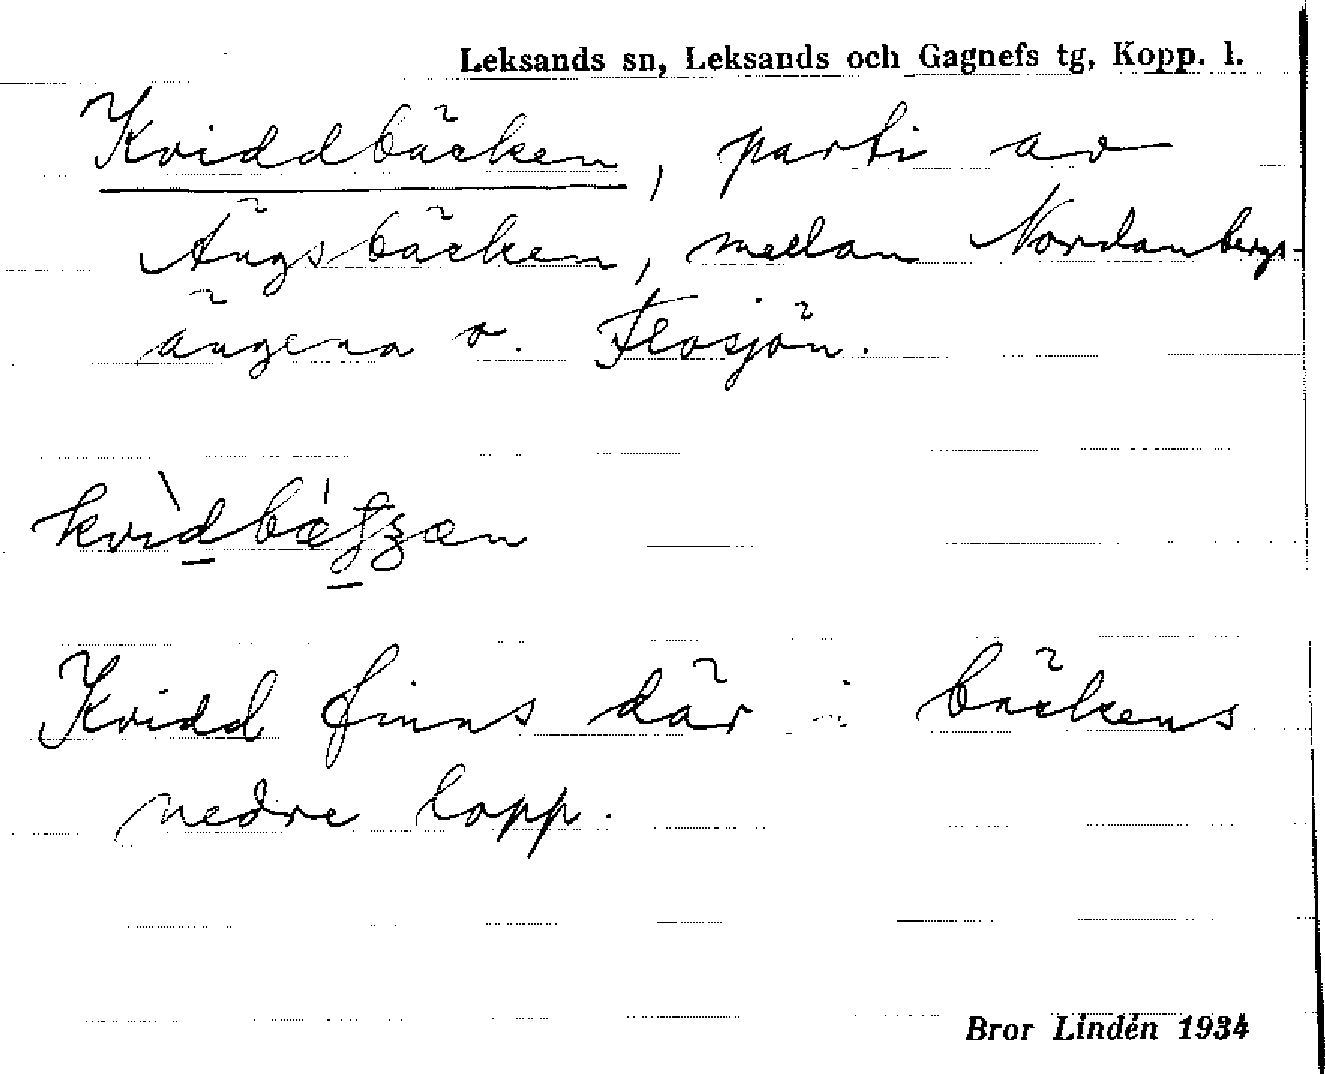 Leksands sn, Leksands och Gagnefs tg, Kopp. l.
Kviddbäcken, parti av
Ängsbäcken, mellan Nordanbergs-
ängena o. Flosjön.
Kvidd finns där i bäckens
nedre lopp.
Bror Lindén 1934